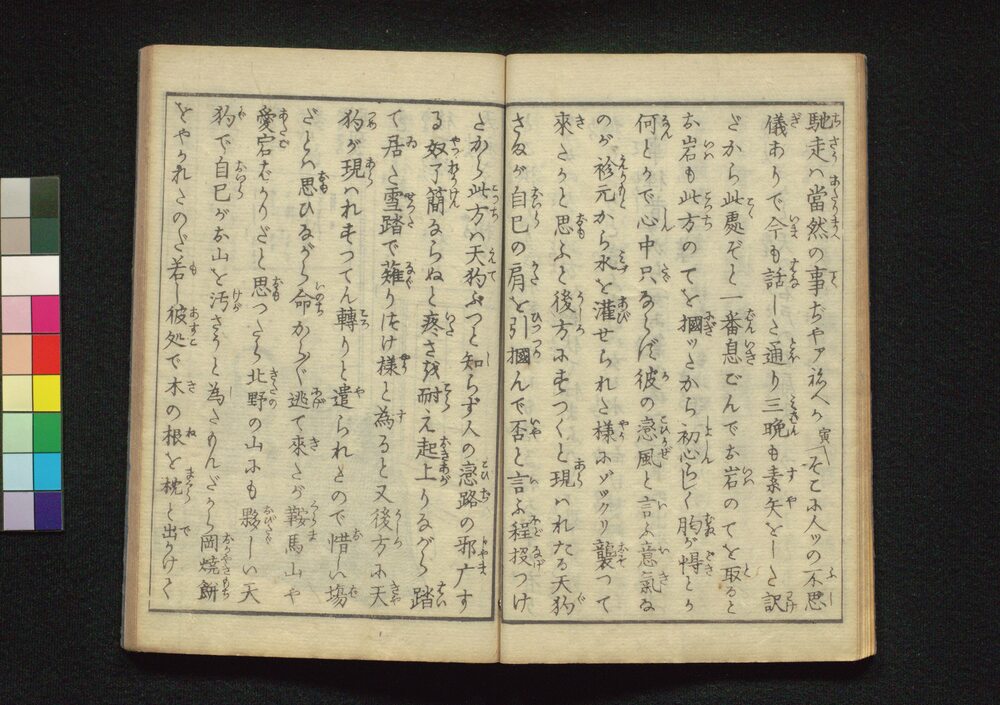 馳走ハ當然の事ぢやアねへか寅「そこに人ツの不思
儀ありで今も話した通り三晩も素矢をした訳
だから此處ぞと一番息ごんでお岩のてを取ると
お岩も此方のてを握ツたから初心らしく胸が悸とか
何とかで心中只ならず彼の恋風と言ふ意氣な
のが衿元から水を灌せられた様にゾツクリ襲つて
來たかと思ふと後方にすつくと現ハれたる天狗
さまが自己の肩を引摑んで否と言ふ程投つけ
たから此方ハ天狗ぶつと知らず人の恋路の邪广す
る奴了簡ならぬと疼さを耐え起上りながら踏
て居た雪踏で薙りつけ様と為ると又後方に天
狗が現ハれすつてん轉りと遣られたので惜しい場
だとハ思ひながら命からがら逃て來たが鞍馬山や
愛宕ばかりだと思つたら北野の山にも夥しい天
狗で自己がお山を汚さうと為たもんだから岡焼餅
をやかれたのだ若し彼処で木の根を枕と出かけて